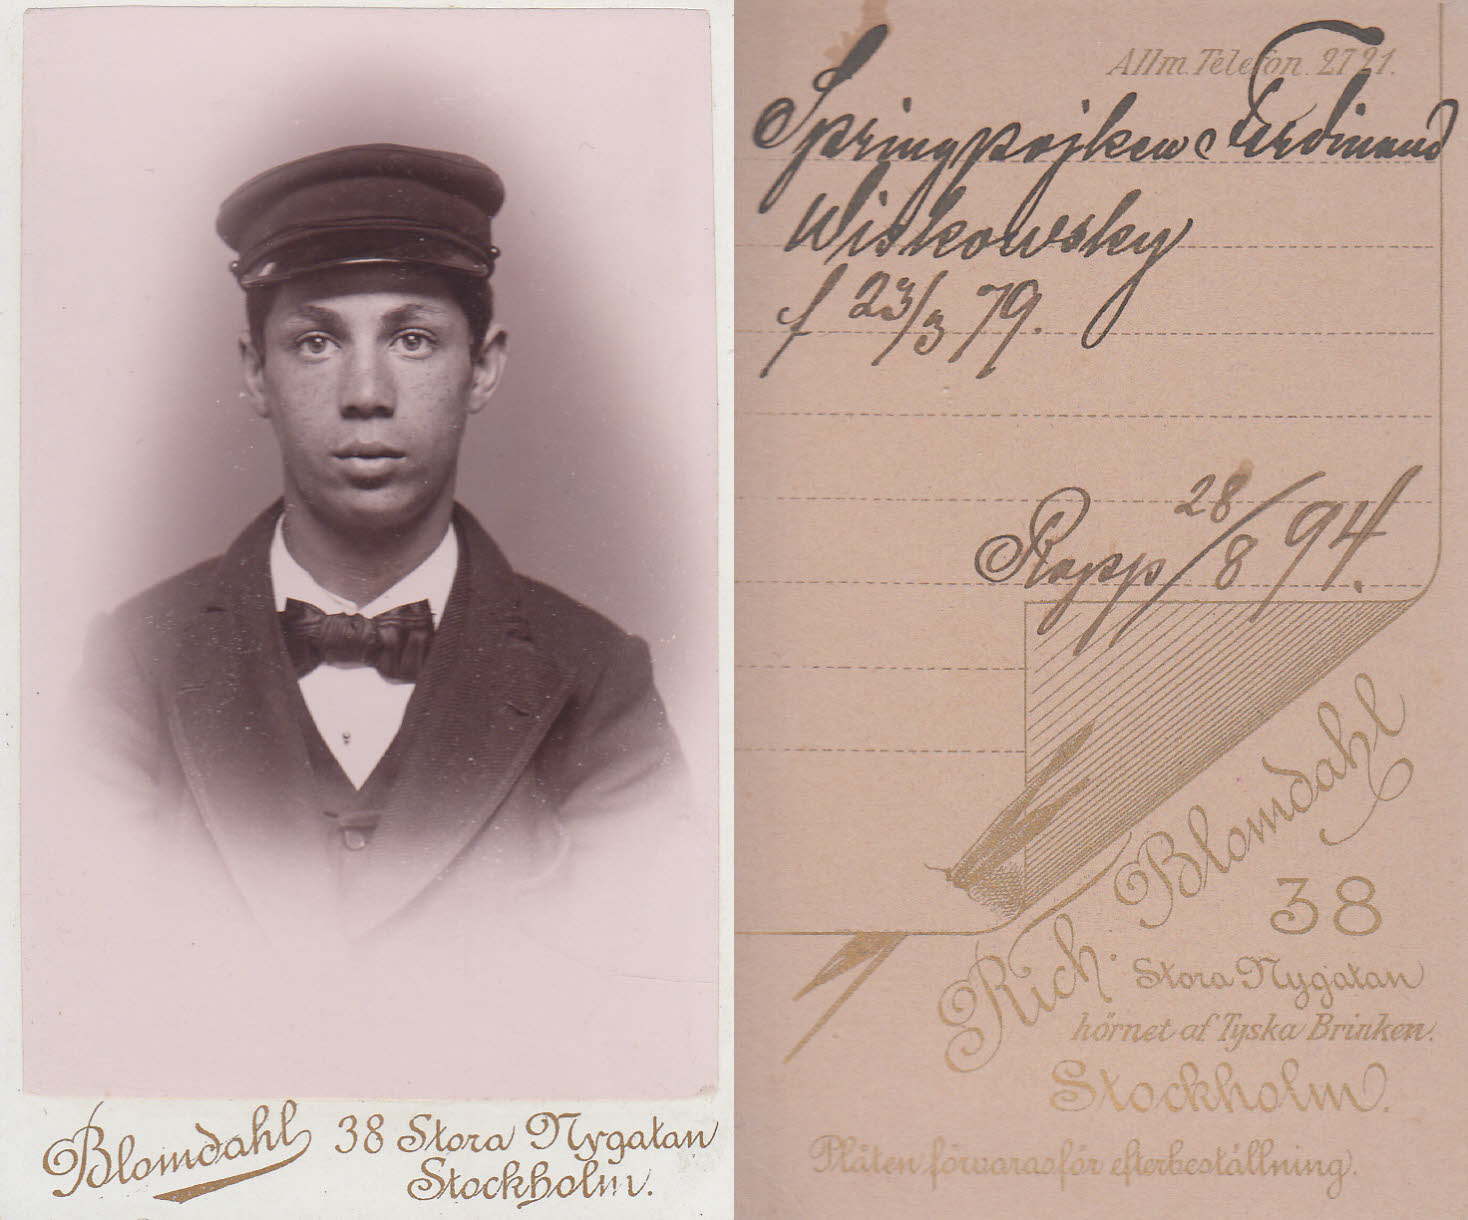 Blomdahl 38 Stora Nygatan
Stockholm.
Allm. Telefon. 2721.
Springpojken Ferdinand
Wiskowsky
f 23/3 79.
Rapp 28/8 94.
Rich. Blomdahl
38
Stora Nygatan
hörnet af Tyska Brinken.
Stockholm.
Plåten förvaras för efterbeställning.